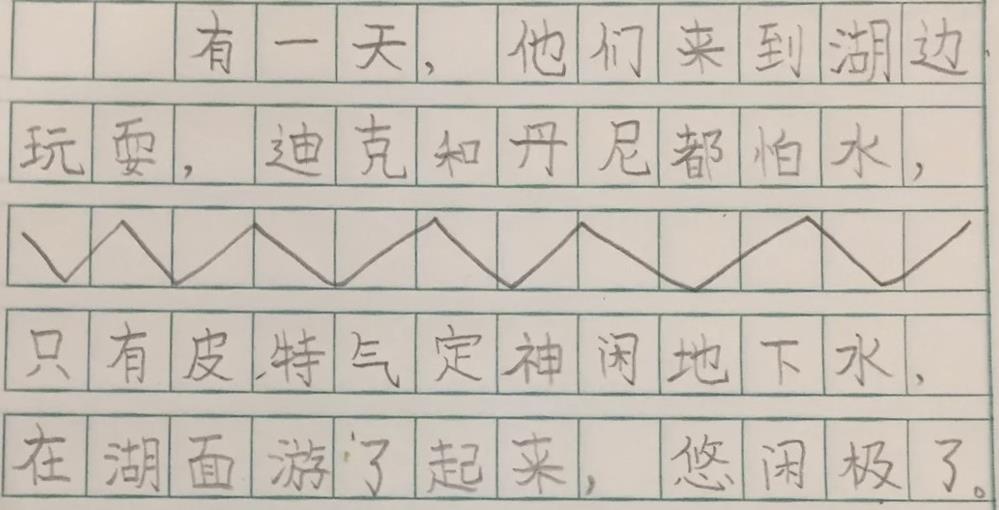 有一天，他们来到湖边
玩耍，迪克和丹尼都怕水，
只有皮特气定神闲地下水，
在湖面游了起来，悠闲极了。